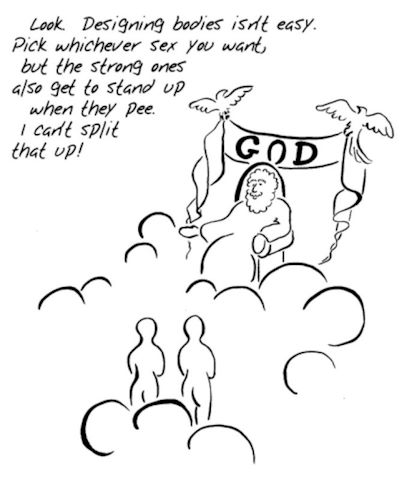 Look. Designing bodies isn't easy.
Pick whichever sex you want,
but the strong ones
also get to stand up
when they pee.
I can't split
that up!
GOD